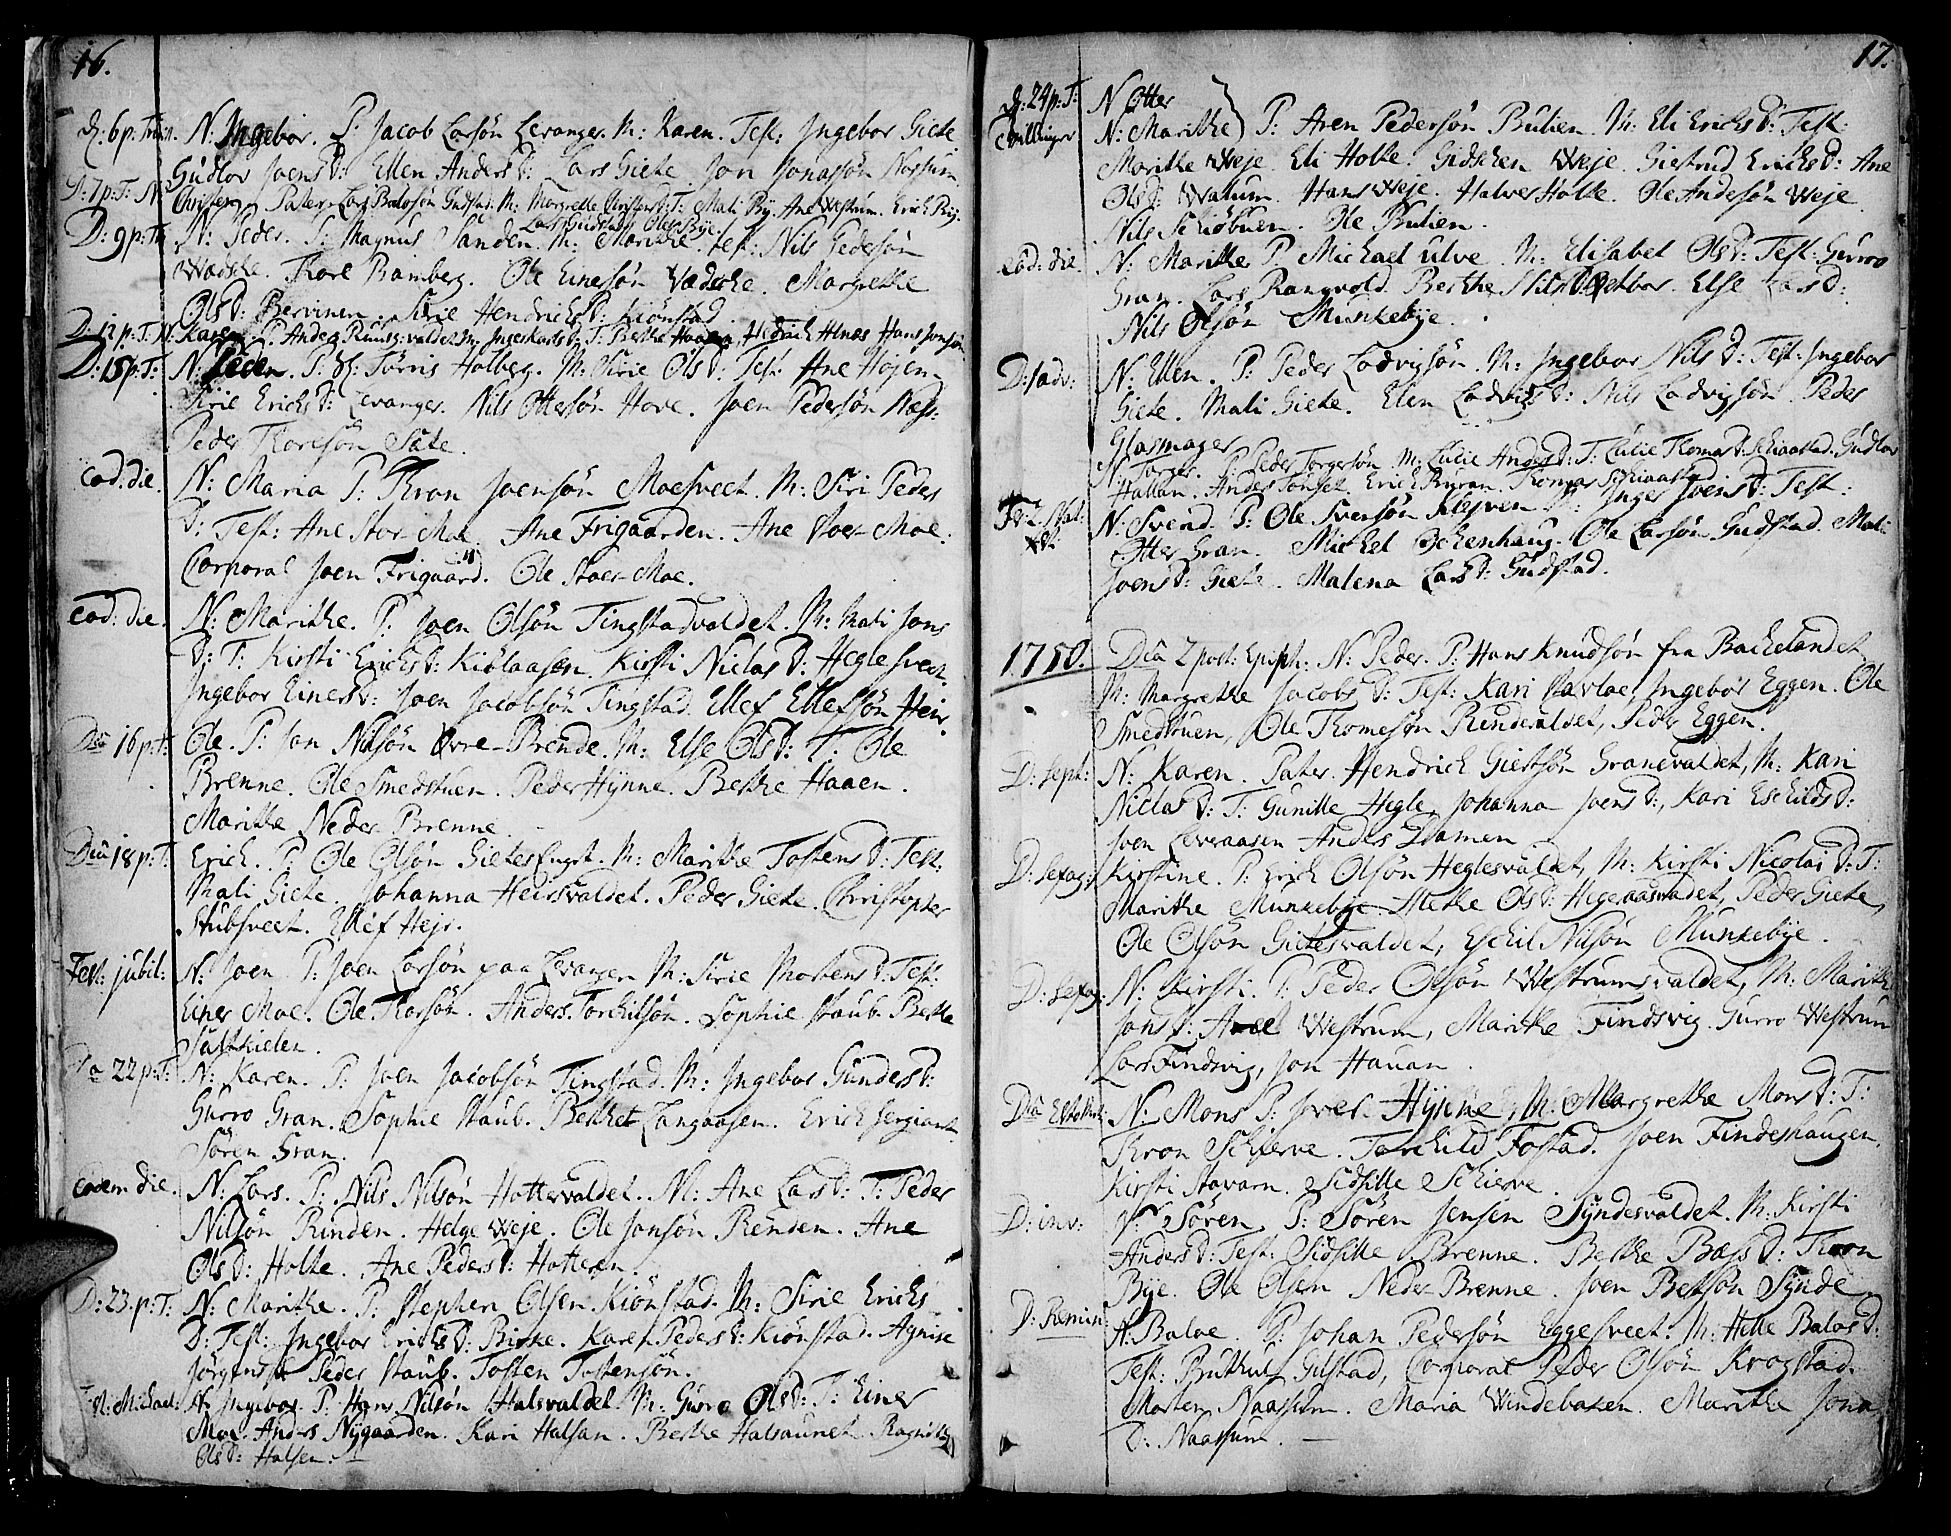 16.
D: 6 p: Trin. N: Ingebor. P: Jacob Larsön Levanger. M: Karen. Test: Ingebor Giete.
Gudlov Joens D: Ellen Anders D: Lars Giete. Jon Jonassön Norsum.
D: 7 p: T: N: Christen. Pater Lars Balosön Gudstad. M: Margrethe Christens D: T: Mali Bÿ. Ane Westrum. Erich Bÿ.
Lars Gudstad. Ole Bÿe.
D: 9 p: Tr. N: Peder. P: Magnus Sanden. M: Marithe. Test: Nils Pedersön
Wædske. Thore Bamberg. Ole Einersön Vædske. Margrethe
Ols D: Bervinen. Sirie Hendrichs D: Kiönstad.
D: 12 p: T. N: Karen. P: Anders Ruusg:valdet M: Ingeb: Larsd: T: Berthe Haaen, Hedrich Hines Hans Jonsön
D: 15 p: T: N: Peder. P: H: Törris Holberg. M: Sirie Ols D: Test: Ane Höjen.
Sirie Erichs D: Levanger. Nils Ottersön Hove. Joen Pedersön Næss.
Peder Thoresön Sæte.
eod: die. N: Maria P: Thron Joensön Moesveet. M: Siri Peders
D: Test: Ane Stor-Moe. Ane Frigaarden. Ane Stoer-Moe.
Corporal Joen Frigaard. Ole Stoer-Moe.
eod: die. N: Marithe. P: Joen Olsön Tingstadvaldet. M: Mali Jons
D: T: Kirsti Erichs D: Kiölaasen. Kirsti Niclas D: Heglesveet.
Ingebor Einers D: Joen Jacobsön Tingstad. Ellef Ellefsön Heir.
Dca 16 p: T: Ole. P: Jon Nilsön Övre-Brende. M: Else Ols D: T: Ole
Brenne. Ole Smedstuen. Peder Hÿnne. Berthe Haaen.
Marithe Neder Brenne.
Dca 18 p: T. Erich. P: Ole Olsön Gietes Enget. M: Marithe Tostens D: Test:
Mali Giete. Johanna Heirsvaldet. Peder Giete. Christopher
Stubsveet. Ellef Hejr.
Fest: jubil: N: Joen. P: Joen Larsön paa Levanger M: Sirie Mortens D: Test:
Einer Moe. Ole Thorsön. Anders Torchilsön. Sophie Staub. Berthe
Saltkielen.
Dca 22 p: T: N: Karen. P: Joen Jacobsön Tingstad. M: Ingebor Gunders D:
Gurro Gran. Sophie Staub. Berthet Langaasen. Erich sergiant.
Sören Gran.
eodem die. N: Lars. P: Nils Nilsön Hottervaldet. M: Ane Lars D: T: Peder
Nilsön Rinden. Helge Weje. Ole Jonsön Renden. Ane
Ols D: Holte. Ane Peders D: Hotteren.
D: 23. p: T: N: Marithe. P: Stephen Olsen Kiönstad. M: Sirie Erichs
D: Test: Ingebor Erichs D: Birke. Karen Peders D: Kiönstad. Agnise
Peder Staub. Tosten Tostensön.
Fest: Michael: N: Ingebor P: Hans Nilsön Halsvaldet M: Gurro Ols D: T: Einer
Moe. Anders Nÿgaarden. Kari Halsan. Berthe Halsaunet. Ragnild
Ols D: Halsen.
17.
D: 24 p: T: N Otter
tvillinger N: Marithe P: Aren Pedersön Bulien. M: Eli Erichs D: Test:
Marithe Weje. Eli Holte. Gidsken Weje. Giertrud Erichs D: Ane
Ols D: Walum. Hans Weje. Halver Holte. Ole Andersön Weje.
Nils Schiöbuen. Ole Bulien.
eod: die. N: Marithe P: Michael Ulve. M: Elisabet Ols D: Test: Gurro
Gran. Lars Rangvold. Berthe Nils D: Else Lars D:
Nils Olsön Munkebÿe.
D: 1 adv: N: Ellen. P: Peder Lodvigsön. M: Ingebor Nils D: Test: Ingebor
Giete. Mali Giete. Elen Lodvigs D: Nils Lodvigsön. Peder
Glasmager
N: Torger. P: Peder Torgersön M: Lucie Anders D: T: Lucie Thomas D: Gudlov
Hallan. Anders Tonset. Erich Buran. Thomas
Fer: 2. Nat: N: Svend. P: Ole Svensön Klejven M: Inger Joens D: Test:
Otter Gran. Michel Ochenhaug. Ole Larsön Gudstad. Mali
Joens D: Giete. Malena Lars D: Gudstad.
1750. Dca 2 post: Epiph: N: Peder. P: Hans Knudsön fra Bachelandet
M: Margrethe Jacobs D: Test: Kari Ingebor Eggen. Ole
Smedstuen, Ole Thomesön Rindevaldet, Peder Eggen.
D: Sept: N: Karen. Pater Hendrich Giertsön Granevaldet, M: Kari
Niclas D: T: Gunille Hegle, Johanna Joens D:, Kari Eschilds D:
Joen Leeraasen Anders Damen
D: Sexag: Kirstine. P: Erich Olsön Heglesvaldet, M: Kirsti Nicolai D: T:
Marithe Munkebÿe. Mette Ols D: Hegeraasvaldet, Peder Giete,
Ole Olsön Gietesvaldet, Eschil Nilsön Munkebÿe.
D: Sexag: N: Kirsti. P: Peder Olsön Westrumsvaldet, M: Marithe
Jons D: Westrum, Marithe Findsvig. Gurro Westrum
Lars Findsvig, Jon Hauan.
Dca Estomih: N: Mons P: Iver Hÿnne, M: Margrethe Mons D: T:
Thron Schierve. Torchild Fostad. Joen Findeshaugen.
Kirsti Stavarn. Sidsille Schierve.
D: inv: N: Sören. P: Sören Jensen Sÿndesvaldet. M: Kirsti
Anders D: Test: Sidsille Brenne. Berthe Baars D: Thron
Bÿe. Ole Olsen Neder Brenne. Joen Bersön Sÿnde.
D: Remin: N: Baloe. P: Johan Pedersön Eggesveet. M: Hille Balos D:
Test: Gustad, Corporal Peder Olsön Krogstad.
Morten Naassum. Maria Windebaken. Marithe Jons
D: Naassum.